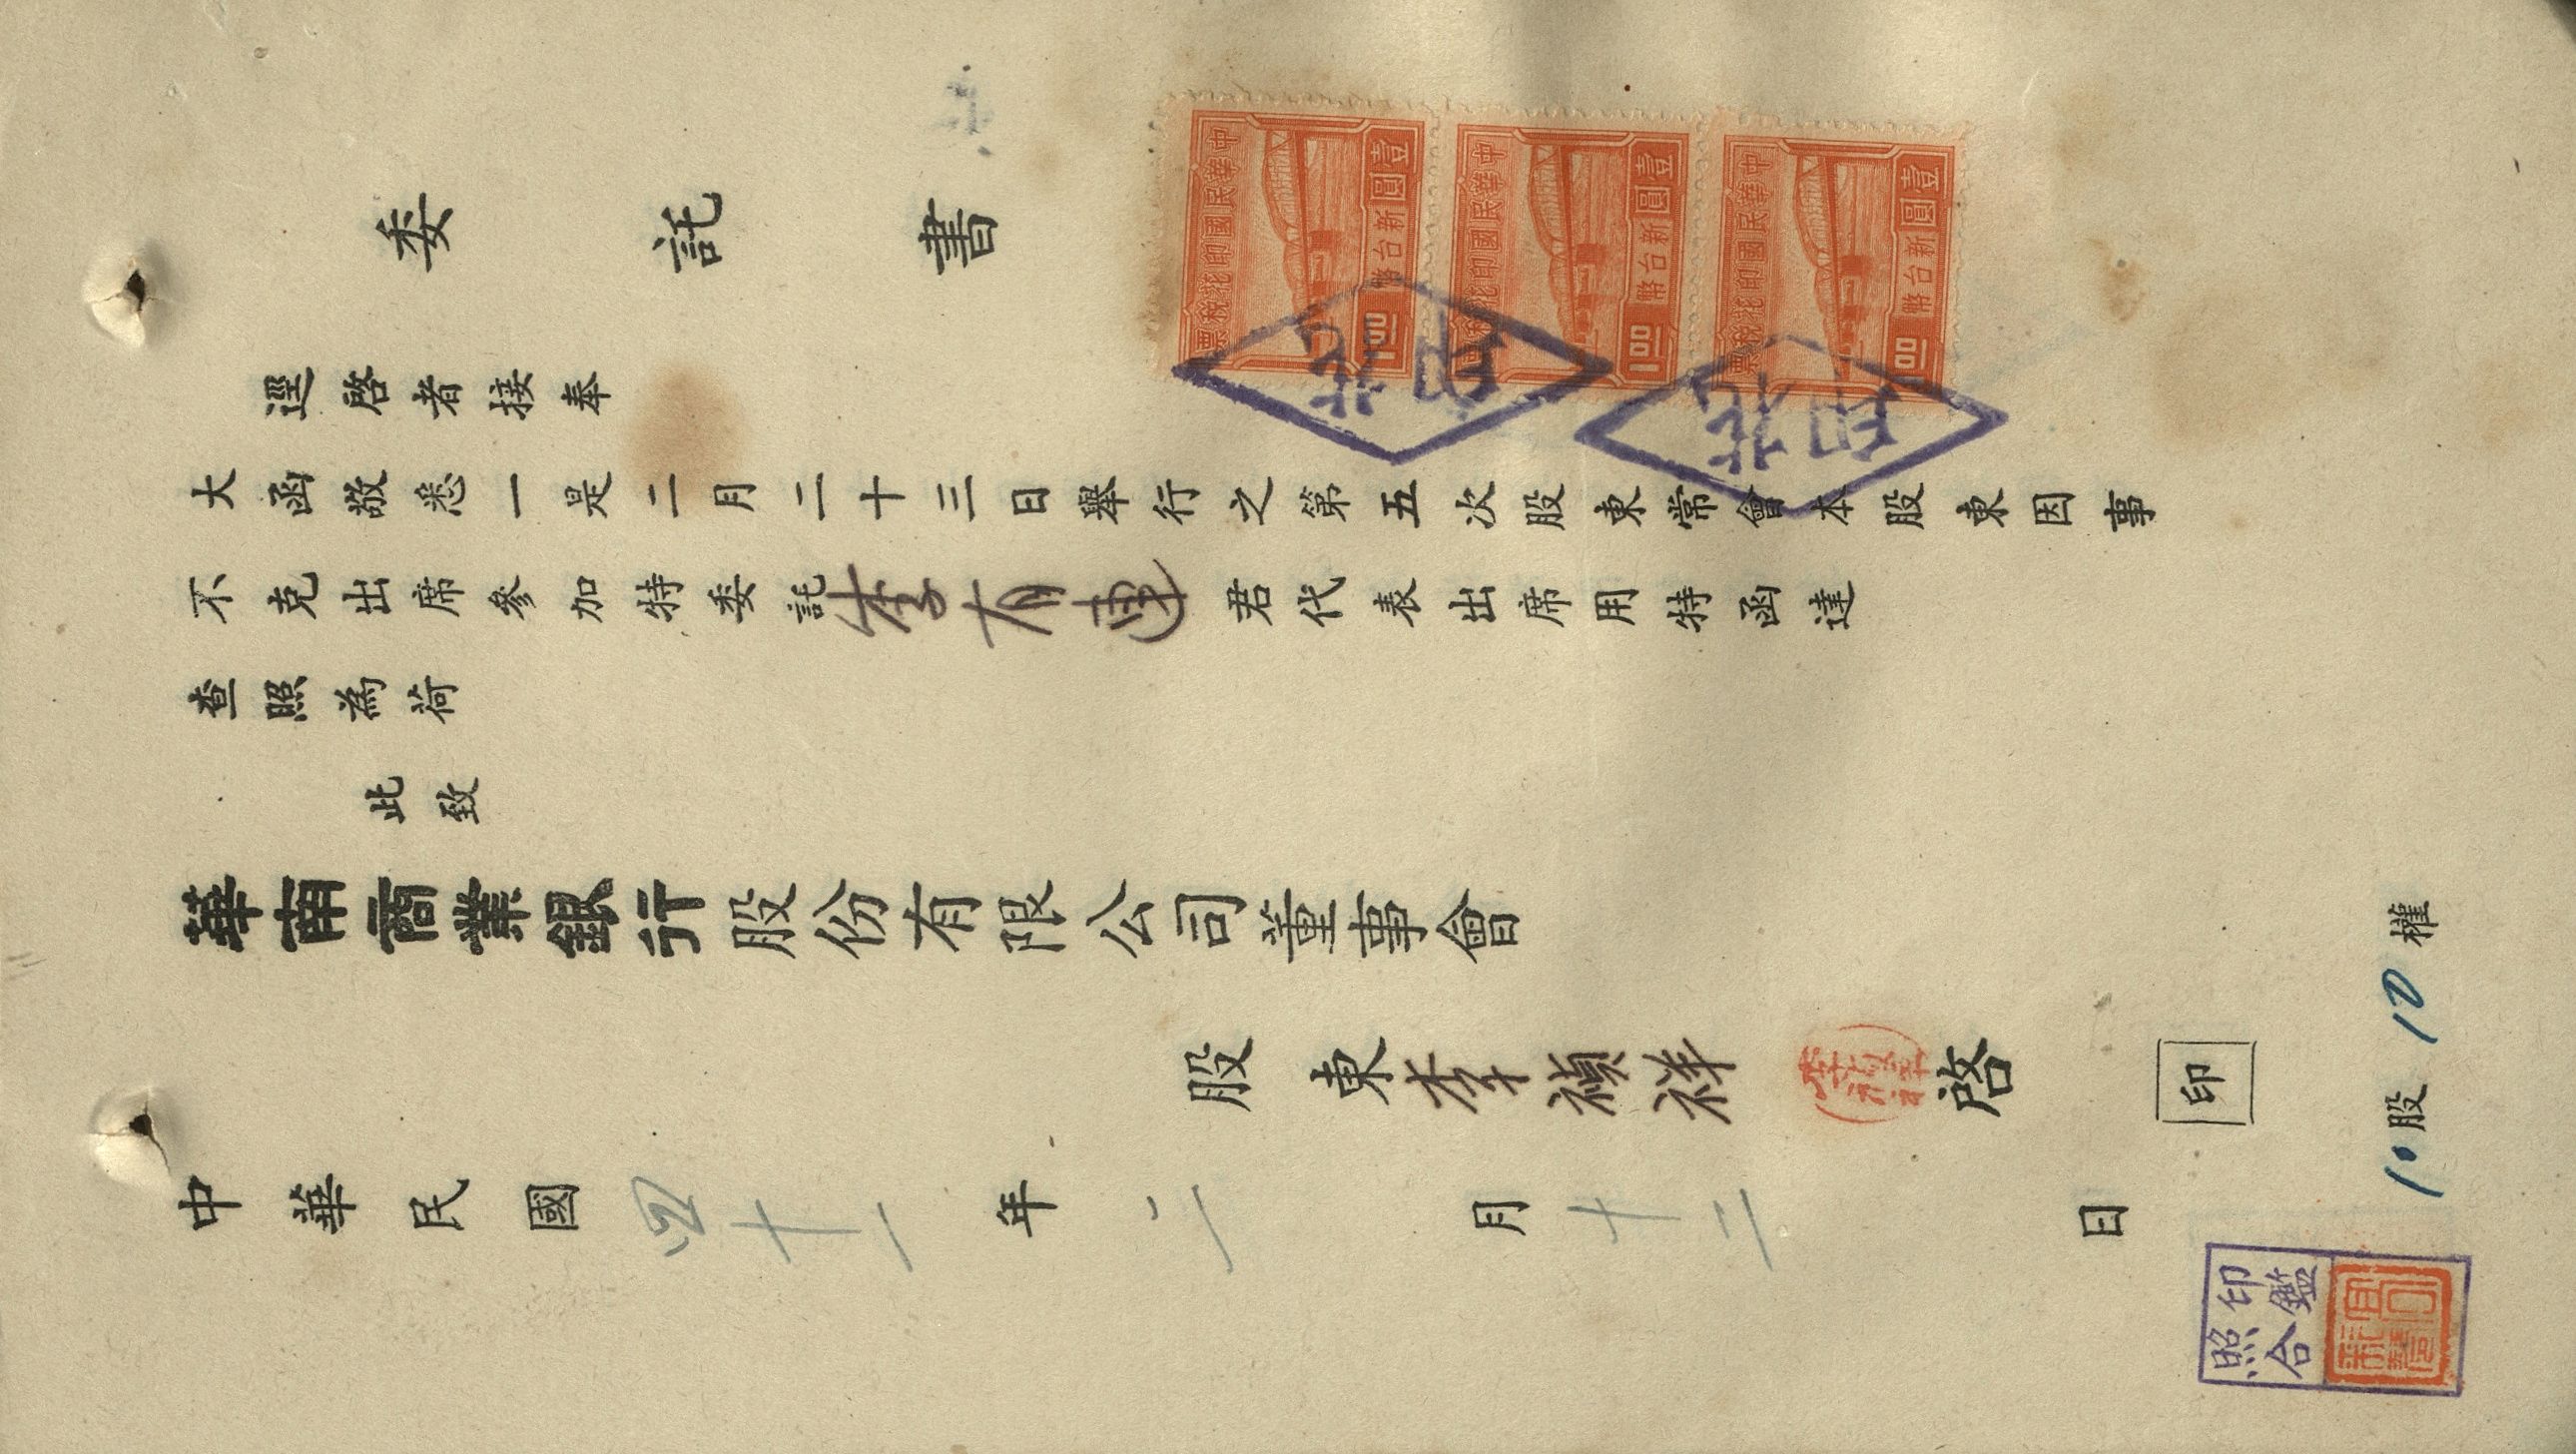 委託書
逕啓者接奉
大函敬悉一是二月二十三日舉行之第五次股東常會本股東因事
不克出席參加特委託李有連君代表出席用特函達
查照為荷
此致
華南商業銀行股份有限公司董事會
股東李禎祥 啓 印
中華民國四十一年二月十二日
10股10權
中華民國印花稅票
壹圓新台幣 1.00
中華民國印花稅票
壹圓新台幣 1.00
中華民國印花稅票
壹圓新台幣 1.00
印花
印花
印鑑
照合